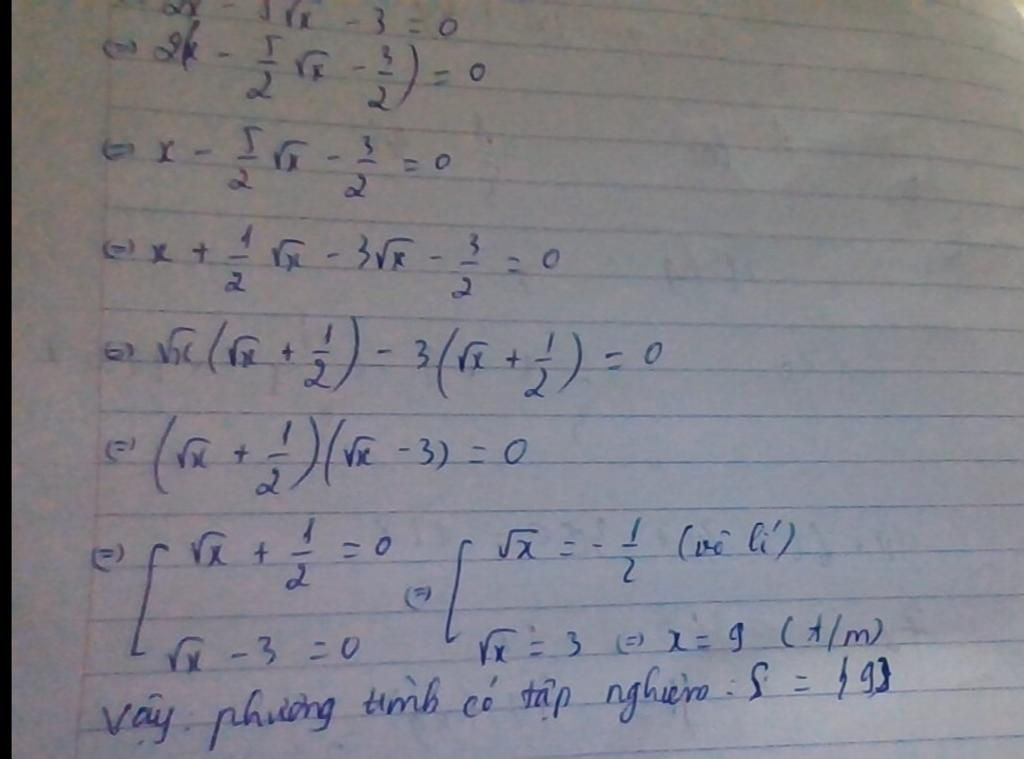 2x - 5√x - 3 = 0
⇔ 2(x - 5/2 √x - 3/2) = 0
⇔ x - 5/2 √x - 3/2 = 0
⇔ x + 1/2 √x - 3√x - 3/2 = 0
⇔ √x (√x + 1/2) - 3(√x + 1/2) = 0
⇔ (√x + 1/2)(√x - 3) = 0
⇔ [ √x + 1/2 = 0 ⇔ [ √x = - 1/2 (vô lí)
√x - 3 = 0 √x = 3 ⇔ x = 9 (t/m)
Vậy phương trình có tập nghiệm: S = {9}